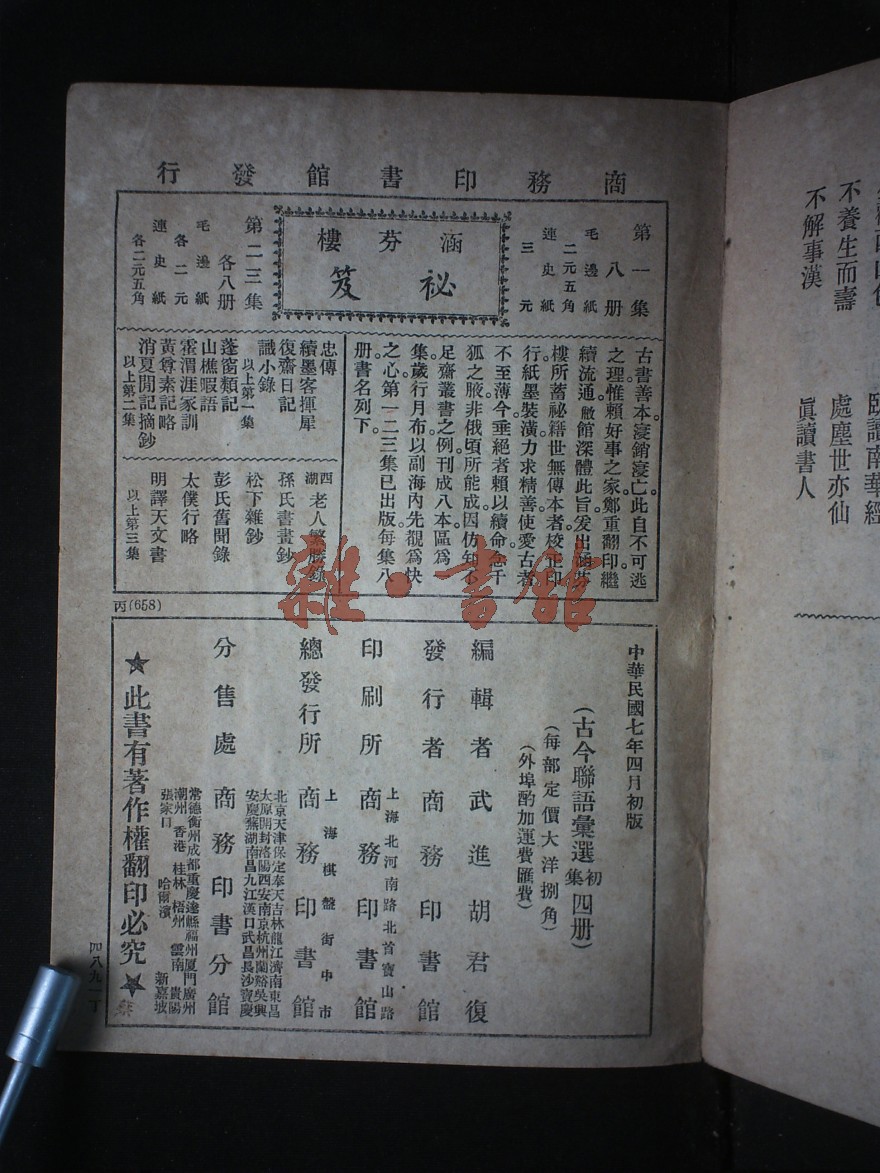 商務印書館發行
第一集
八册
毛邊紙
二元五角
連史紙
三元
涵芬樓
祕笈
第二三集
各八册
毛邊紙
各二元
連史紙
各二元五角
古書善本。寖銷寖亡。此自不可逃
之理。惟賴好事之家。鄭重翻印。繼
續流通。敝館深體此旨。发出涵芬
樓所蓄祕籍。世無傳本者。校正印
行。紙墨裝潢。力求精善。使愛古者
不至薄今。垂絕者賴以續命。念千
狐之腋。非俄頃所能成。因仿知不
足齋叢書之例。刊成八本。區爲一
集。歲行月布。以副海內先覩爲快
之心。第一二三集已出版。每集八
册。書名列下。
忠傳
續墨客揮犀
復齋日記
識小錄
以上第一集
蓬窗類記
山樵暇語
霍渭涯家訓
黃尊素記略
消夏閒記摘鈔
以上第二集
西湖老人繁勝錄
孫氏書畫鈔
松下雜鈔
彭氏舊聞錄
太僕行略
明譯天文書
以上第三集
丙(658)
中華民國七年四月初版
(古今聯語彙選初集四册)
(每部定價大洋捌角)
(外埠酌加運費匯費)
編輯者 武進胡君復
發行者 商務印書館
上海北河南路北首寶山路
印刷所 商務印書館
上海棋盤街中市
總發行所 商務印書館
北京天津保定奉天吉林龍江濟南東昌
太原開封洛陽西安南京杭州蘭谿吳興
安慶蕪湖南昌九江漢口武昌長沙寶慶
分售處 商務印書分館
常德衡州成都重慶瀘縣福州厦門廣州
潮州 香港 桂林 梧州 雲南 貴陽
張家口 哈爾濱 新嘉坡
★此書有著作權翻印必究★
四八九一丁
雜·書館
不養生而壽
處塵世亦仙
不解事漢
眞讀書人
臥讀南華經